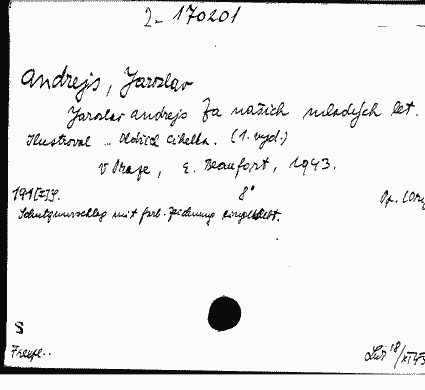 2-170201
Andrejs, Jaroslav
Jaroslav Andrejs Za našich mladých let.
Ilustroval .. Oldřich Cihelka. (1. vyd.)
V Praze, E. Beaufort, 1943.
191[2]S. 8°
Schutzumschlag mit farb. Zeichnung
S